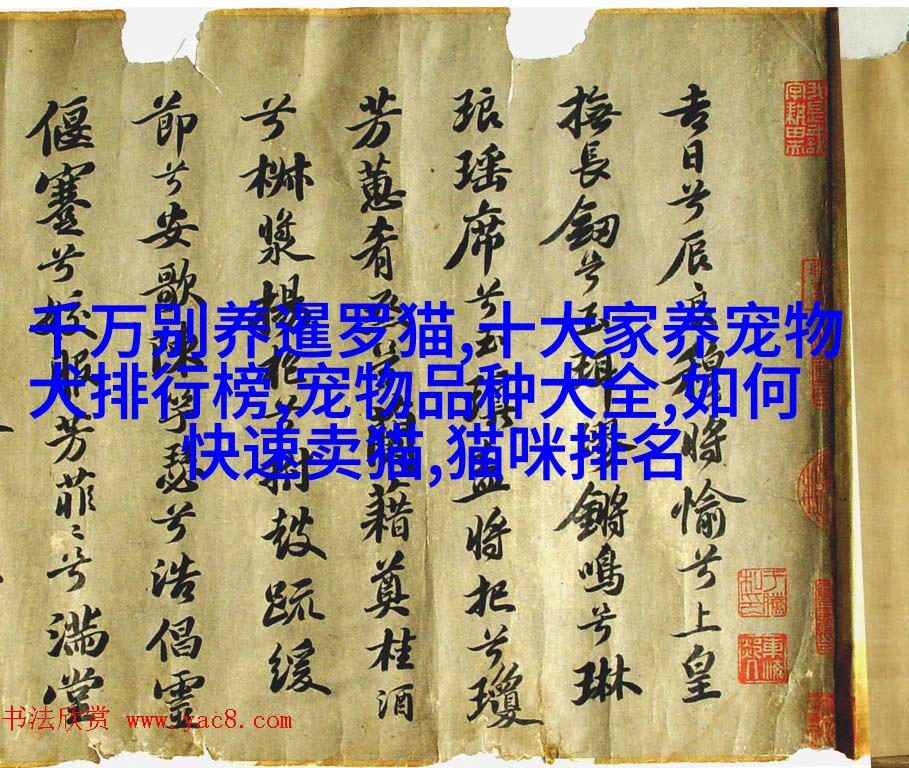 千万别养暹罗猫,十大家养宠物
大排行榜,宠物品种大全,如何
快速卖猫,猫咪排名
吉日兮辰良穆將愉兮上皇
撫長劔兮玉珥璆鏘鳴兮琳
琅瑶席兮玉瑱盍將把兮瓊
芳蕙肴烝兮蘭藉奠桂酒
兮椒漿揚枹兮拊鼓疏緩
節兮安歌陳竽瑟兮浩倡靈
偃蹇兮姣服芳菲〻兮滿堂
书法欣赏 www.yac8.com